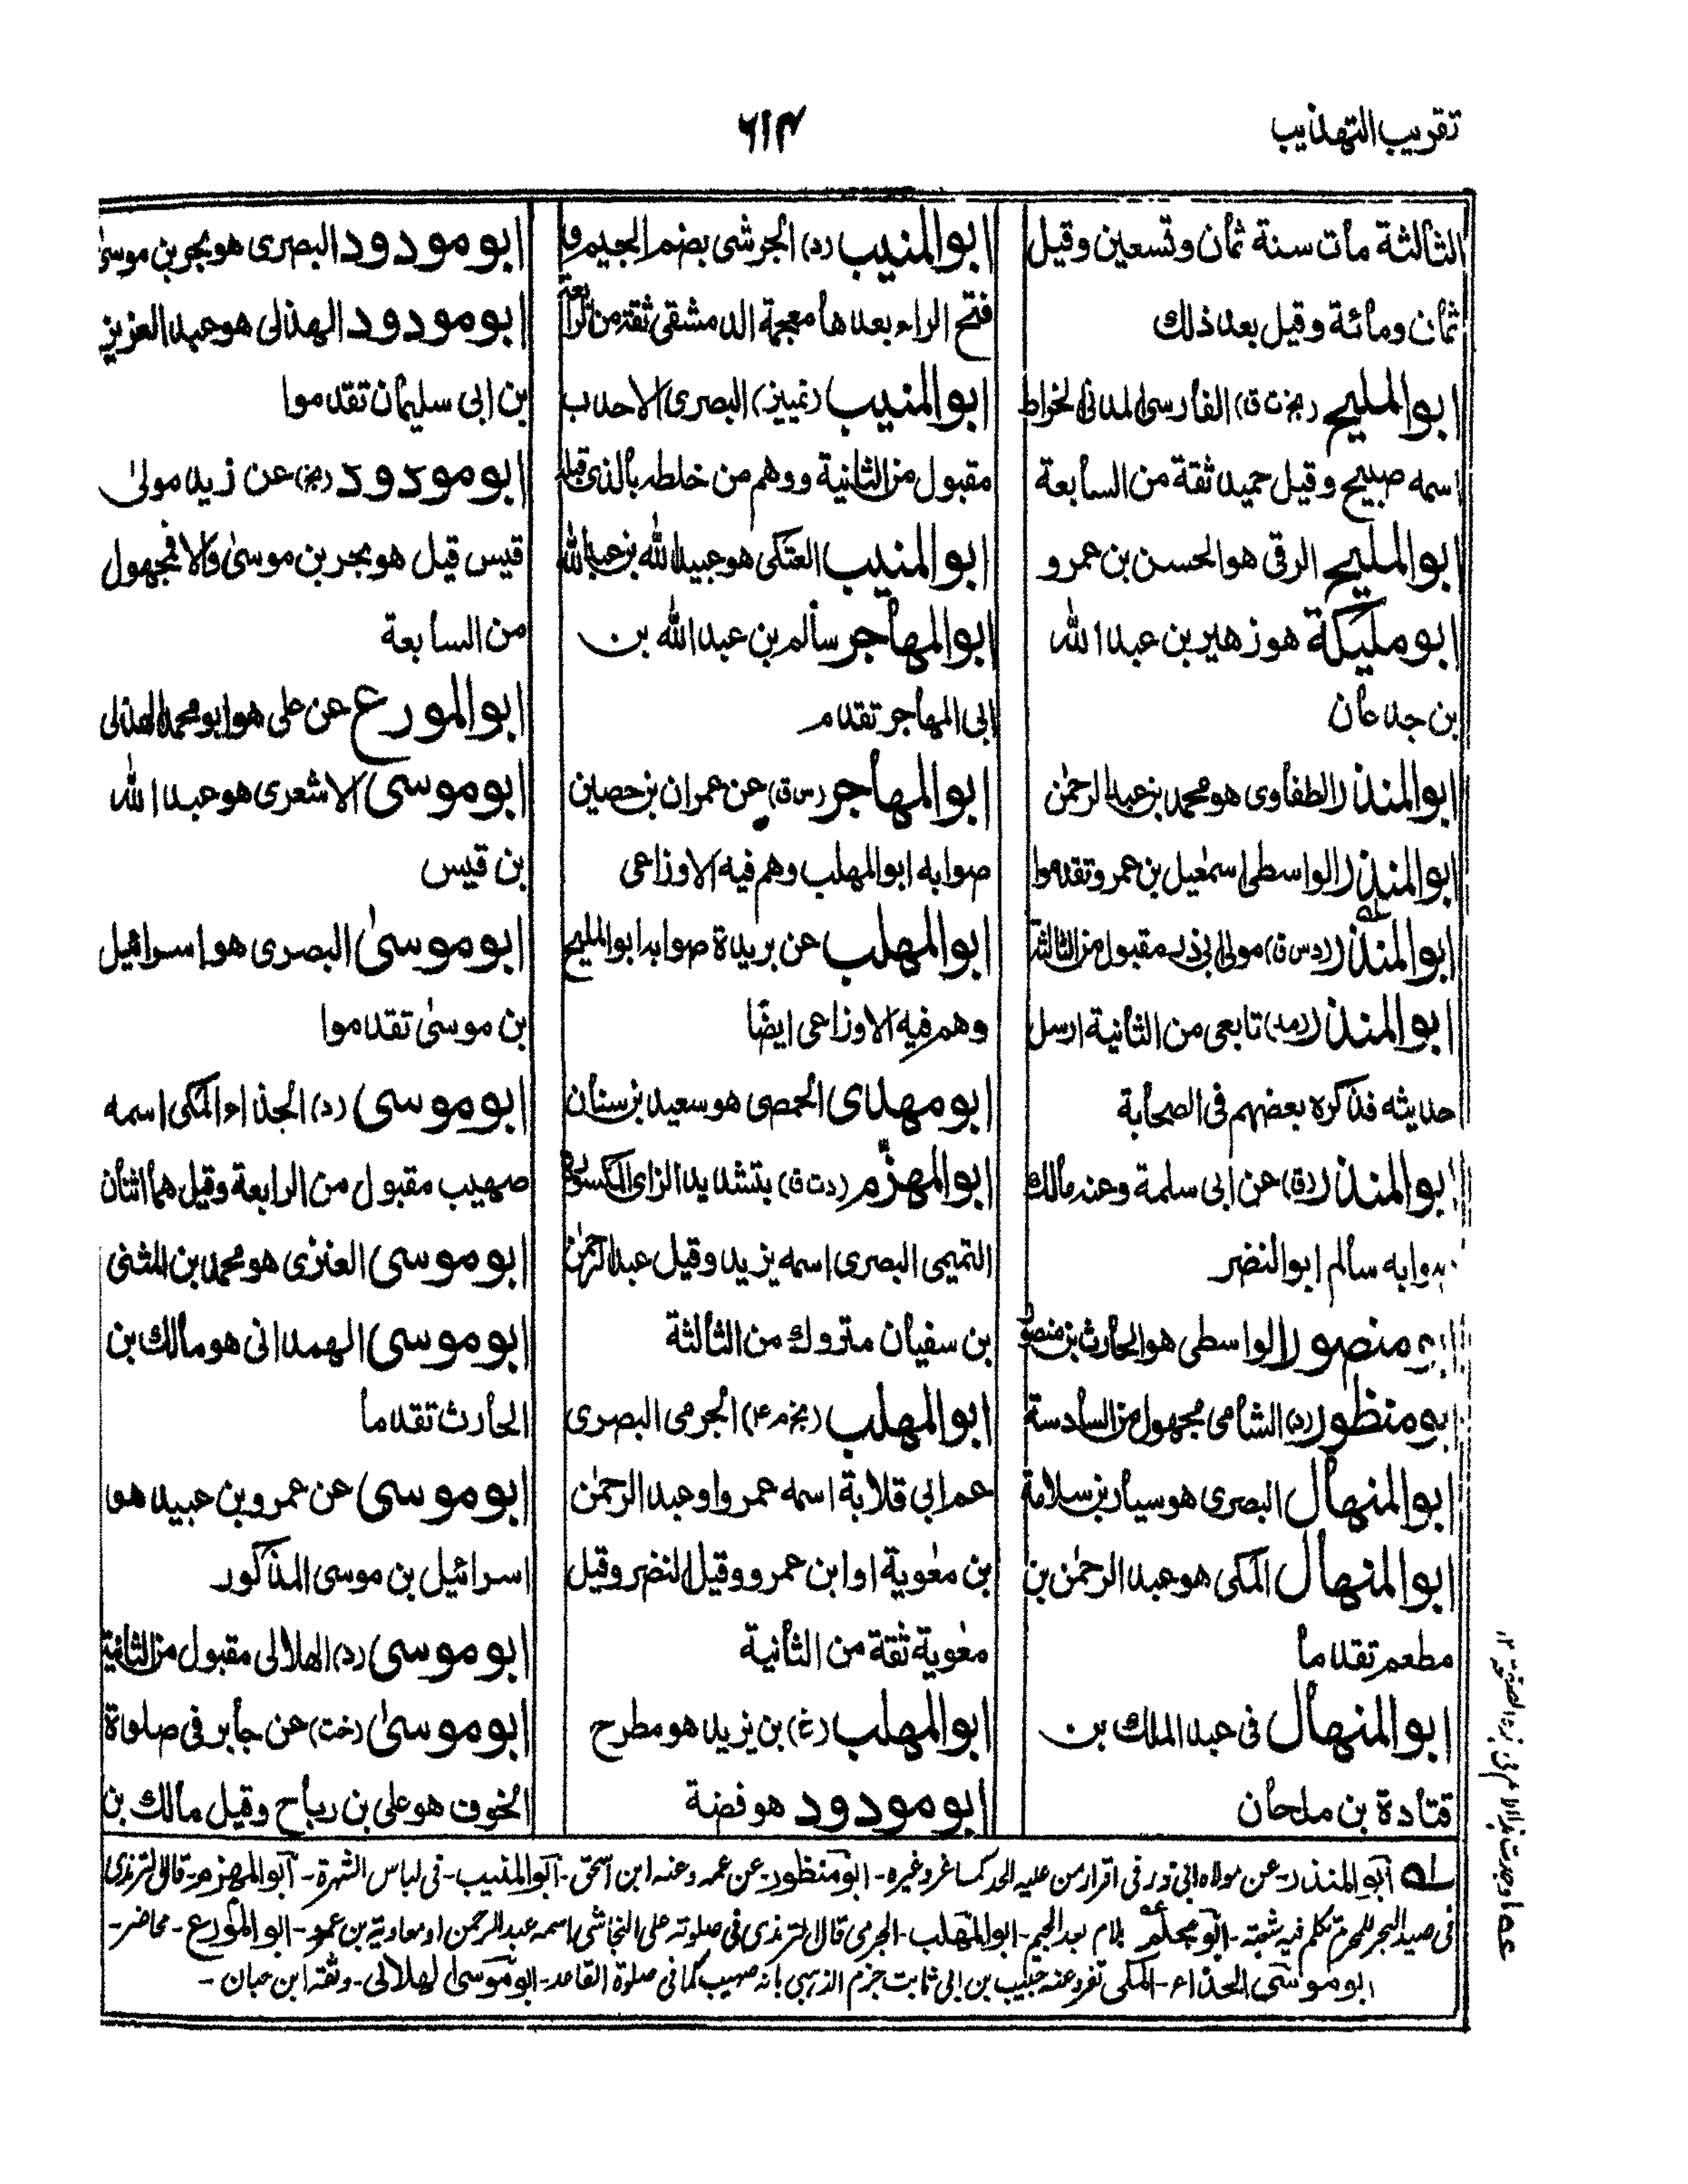 تقريب التهذيب
٦١٤
الثالثة مات سنة ثمان وتسعين وقيل
ثمان ومائة وقيل بعد ذلك
ابو المليح (بخ ت ق) الفارسى المدنى الخراط
اسمه صبيح وقيل حميد ثقة من السابعة
ابو المليح الرقى هو الحسن بن عمرو
ابو مليكة هو زهير بن عبد الله
بن جدعان
ابو المنذر الطفاوى هو محمد بن عبد الرحمٰن
ابو المنذر الواسطى اسمٰعيل بن عمر وتقدموا
ابو المنذر (د س ق) مولى ابى ذر مقبول من الثالثة
ابو المنذر (مد) تابعى من الثانية ارسل
حديثه فذكره بعضهم فى الصحابة
ابو المنذر (ق) عن ابى سلمة وعنه مالك
صوابه سالم ابو النضر
ابو منصور الواسطى هو الحارث بن منصور
ابو منظور (د) الشامى مجهول من السادسة
ابو المنهال البصرى هو سيار بن سلامة
ابو المنهال المكى هو عبد الرحمٰن بن
مطعم تقدما
ابو المنهال فى عبد الملك بن
قتادة بن ملحان
ابو المنيب (د) الجرشى بضم الجيم و
فتح الراء بعدها معجمة الدمشقى ثقة من الرابعة
ابو المنيب (تمييز) البصرى الاحدب
مقبول من الثانية ووهم من خلطه بالذى قبله
ابو المنيب العتكى هو عبيد الله بن عبد الله
ابو المهاجر سالم بن عبد الله بن
ابى المهاجر تقدم
ابو المهاجر (س ق) عن عمران بن حصين
صوابه ابو المهلب وهم فيه الاوزاعى
ابو المهلب عن بريدة صوابه ابو المليح
وهم فيه الاوزاعى ايضًا
ابو مهدى الحمصى هو سعيد بن سنان
ابو المهزّم (د ت ق) بتشديد الزاى المكسورة
التميمى البصرى اسمه يزيد وقيل عبد الرحمٰن
بن سفيان متروك من الثالثة
ابو المهلب (بخ م ٤) الجرمى البصرى
عم ابى قلابة اسمه عمرو او عبد الرحمٰن
بن معٰوية او ابن عمرو وقيل النضر وقيل
معٰوية ثقة من الثانية
ابو المهلب (غ) بن يزيد هو مطرح
ابو مودود هو فضة
ابو مودود البصرى هو بحر بن موسىٰ
ابو مودود الهذلى هو عبد العزيز
بن ابى سليمان تقدموا
ابو مودود (بخ) عن زيد مولىٰ
قيس قيل هو بحر بن موسىٰ والا فمجهول
من السابعة
ابو المورع عن على هو ابو محمد الهذلى
ابو موسى الاشعرى هو عبد الله
بن قيس
ابو موسىٰ البصرى هو اسرائيل
بن موسىٰ تقدموا
ابو موسى (د) الحذاء المكى اسمه
صهيب مقبول من الرابعة وقيل هما اثنان
ابو موسى العنزى هو محمد بن المثنى
ابو موسى الهمدانى هو مالك بن
الحارث تقدما
ابو موسى عن عمرو بن عبيد هو
اسرائيل بن موسى المذكور
ابو موسى (د) الهلالى مقبول من الثانية
ابو موسىٰ (خت) عن جابر فى صلوة
الخوف هو على بن رباح وقيل مالك بن
لـه ابو المنذر- عن مولاه ابى ذر فى اقرار من عليه الحد كما عز وغيره- ابو منظور- عن عمه وعنه ابن اسحٰق- ابو المنيب- فى لباس الشهرة- ابو المهزم- قال الترمذى
فى صيد البحر للمحرم تكلم فيه شعبة- ابو بلام بعد الجيم- ابو المهلب- الجرمى قال الترمذى فى صلوته على النجاشى اسمه عبد الرحمن او معاوية بن عمرو- ابو المورع- محاضر-
ابو موسى الحذاء- المكى تفرد عنه حبيب بن ابى ثابت جزم الذهبى بانه صهيب كما فى صلوة القاعد- ابو موسىٰ الهلالى- وثقه ابن حبان-